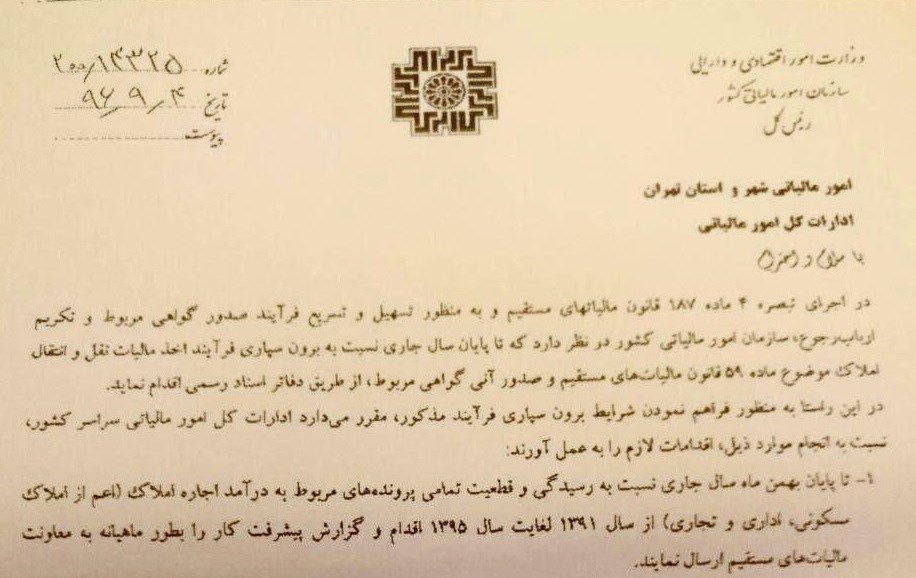 وزارت امور اقتصادی و دارایی
سازمان امور مالیاتی کشور
رئیس کل
شماره ۲۰۰/۱۴۳۲۵
تاریخ ۹۶/۹/۴
پیوست
امور مالیاتی شهر و استان تهران
ادارات کل امور مالیاتی
با سلام و احترام
در اجرای تبصره ۴ ماده ۱۸۷ قانون مالیاتهای مستقیم و به منظور تسهیل و تسریع فرآیند صدور گواهی مربوط و تکریم
ارباب‌رجوع، سازمان امور مالیاتی کشور در نظر دارد که تا پایان سال جاری نسبت به برون سپاری فرآیند اخذ مالیات نقل و انتقال
املاک موضوع ماده ۵۹ قانون مالیات‌های مستقیم و صدور آنی گواهی مربوط، از طریق دفاتر اسناد رسمی اقدام نماید.
در این راستا به منظور فراهم نمودن شرایط برون سپاری فرآیند مذکور، مقرر می‌دارد ادارات کل امور مالیاتی سراسر کشور،
نسبت به انجام موارد ذیل، اقدامات لازم را به عمل آورند:
۱- تا پایان بهمن ماه سال جاری نسبت به رسیدگی و قطعیت تمامی پرونده‌های مربوط به درآمد اجاره املاک (اعم از املاک
مسکونی، اداری و تجاری) از سال ۱۳۹۱ لغایت سال ۱۳۹۵ اقدام و گزارش پیشرفت کار را بطور ماهیانه به معاونت
مالیات‌های مستقیم ارسال نمایند.